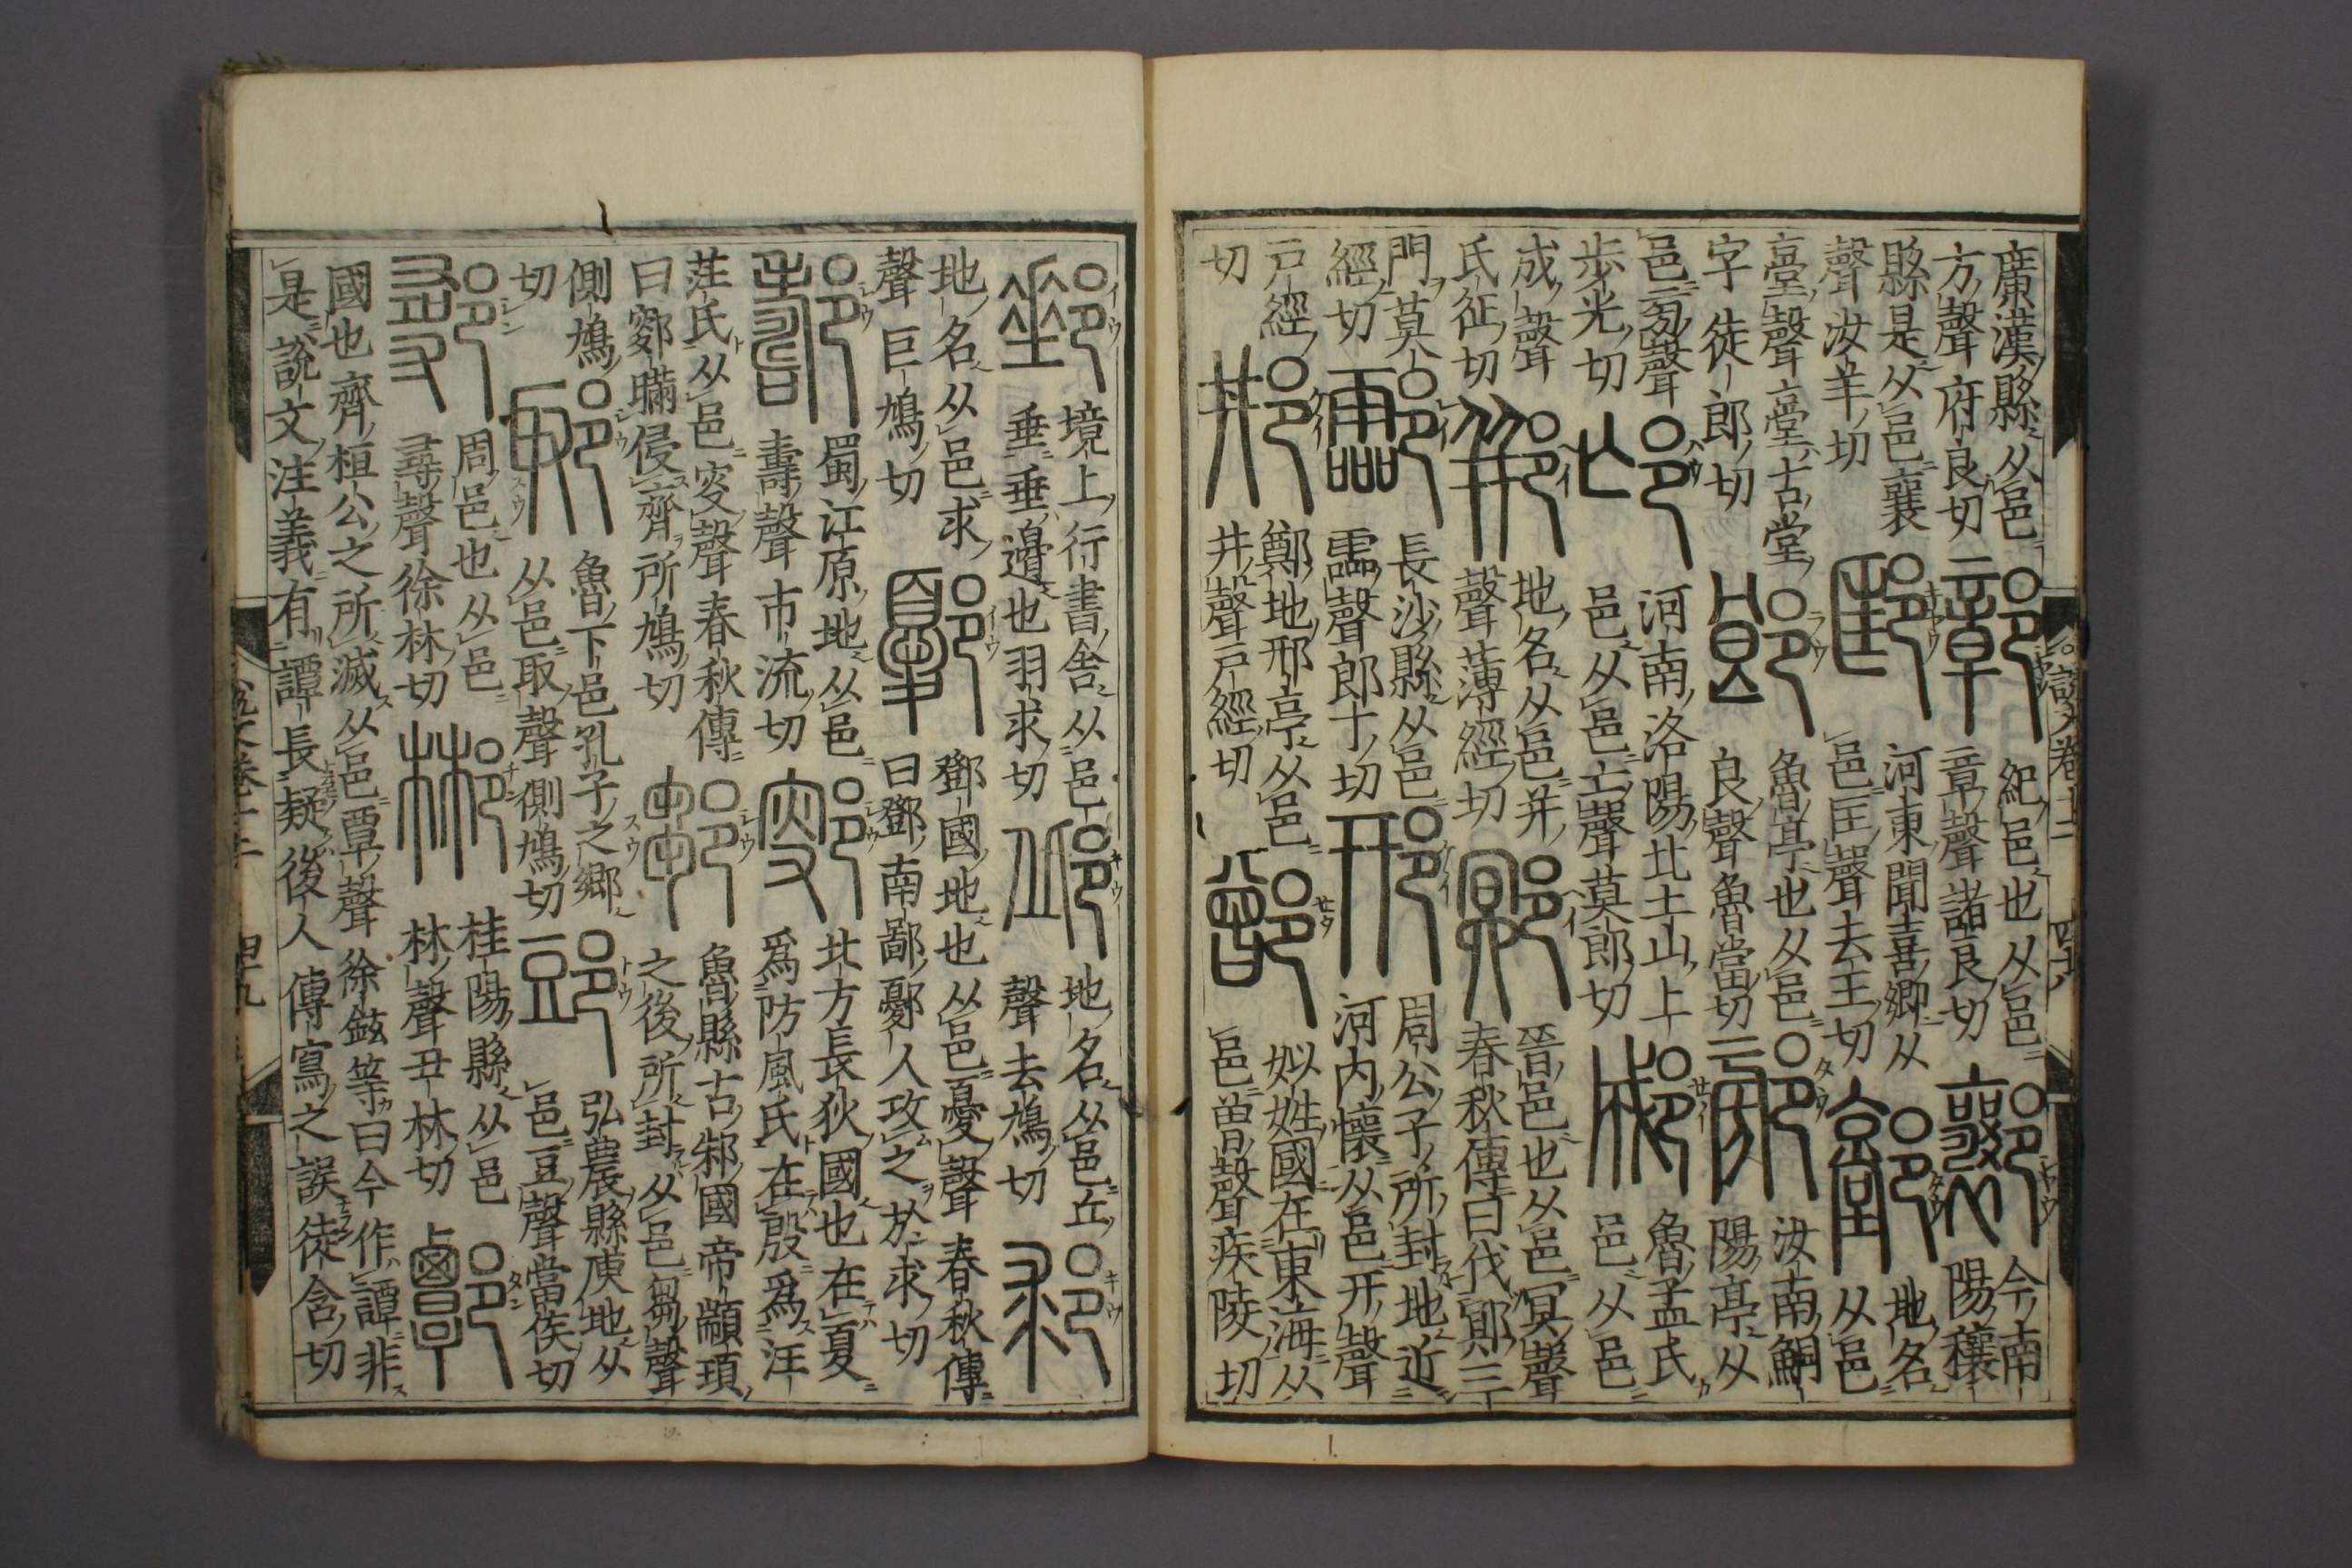 廣漢縣从邑
方聲府良切
鄣
紀邑也从邑
章聲諸良切
今南
陽穰
縣是从邑襄
聲汝羊切
邼
河東聞喜鄉从
邑匡聲去王切
地名
从邑
臺聲臺古堂
字徒郎切
郎
魯亭也从邑
良聲魯當切
汝南鮦
陽亭从
邑㫄聲
步光切
邙
河南洛陽北土山上
邑从邑亡聲莫郎切
郕
魯孟氏
邑从邑
成聲
氏征切
郱
地名从邑并
聲薄經切
鄍
晉邑也从邑冥聲
春秋傳曰伐鄍三
門莫
經切
酃
長沙縣从邑
霝聲郎丁切
邢
周公子所封地近
河內懷从邑幵聲
戶經
切
鄭地邢亭从邑
井聲戶經切
鄫
姒姓國在東海从
邑曾聲疾陵切
說文卷十二
四十八
郵
境上行書舍从邑
垂垂邊也羽求切
邱
地名从邑丘
聲去鳩切
邟
地名从邑求
聲巨鳩切
鄾
鄧國地也从邑憂聲春秋傳
曰鄧南鄙鄾人攻之於求切
蜀江原地从邑
壽聲市流切
鄋
北方長狄國也在夏
爲防風氏在殷爲汪
茫氏从邑叜聲春秋傳
曰鄋瞞侵齊所鳩切
鄒
魯縣古邾國帝顓頊
之後所封从邑芻聲
側鳩
切
郰
魯下邑孔子之鄉
从邑取聲側鳩切
郖
弘農縣庾地从
邑豆聲當侯切
鄩
周邑也从邑
尋聲徐林切
郴
桂陽縣从邑
林聲丑林切
國也齊桓公之所滅从邑覃聲徐鉉等曰今作譚非
是說文注義有譚長疑後人傳寫之誤徒含切
說文卷十二
四十九